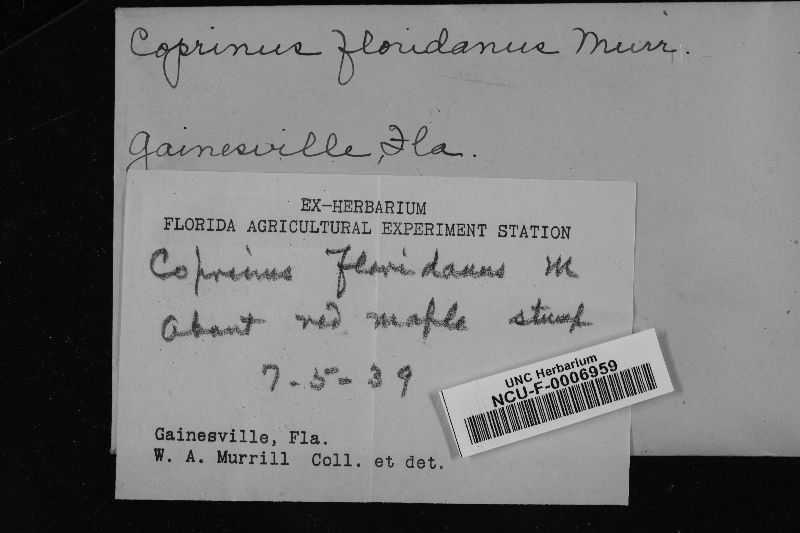 Coprinus floridanus Murr.
Gainesville, Fla.
EX-HERBARIUM
FLORIDA AGRICULTURAL EXPERIMENT STATION
Coprinus floridanus M
About red maple stump
7-5-39
UNC Herbarium
NCU-F-0006959
Gainesville, Fla.
W. A. Murrill Coll. et det.